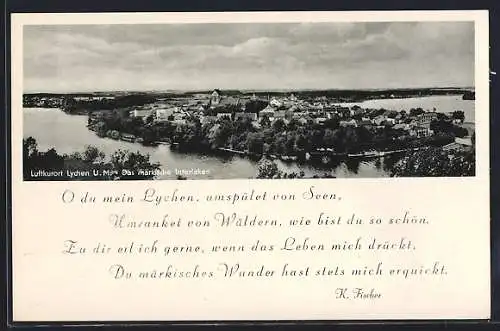 Luftkurort Lychen U. M. - Das märkische Interlaken
O du mein Lychen, umspület von Seen,
Umranket von Wäldern, wie bist du so schön.
Zu dir eil ich gerne, wenn das Leben mich drückt,
Du märkisches Wunder hast stets mich erquickt.
K. Fischer